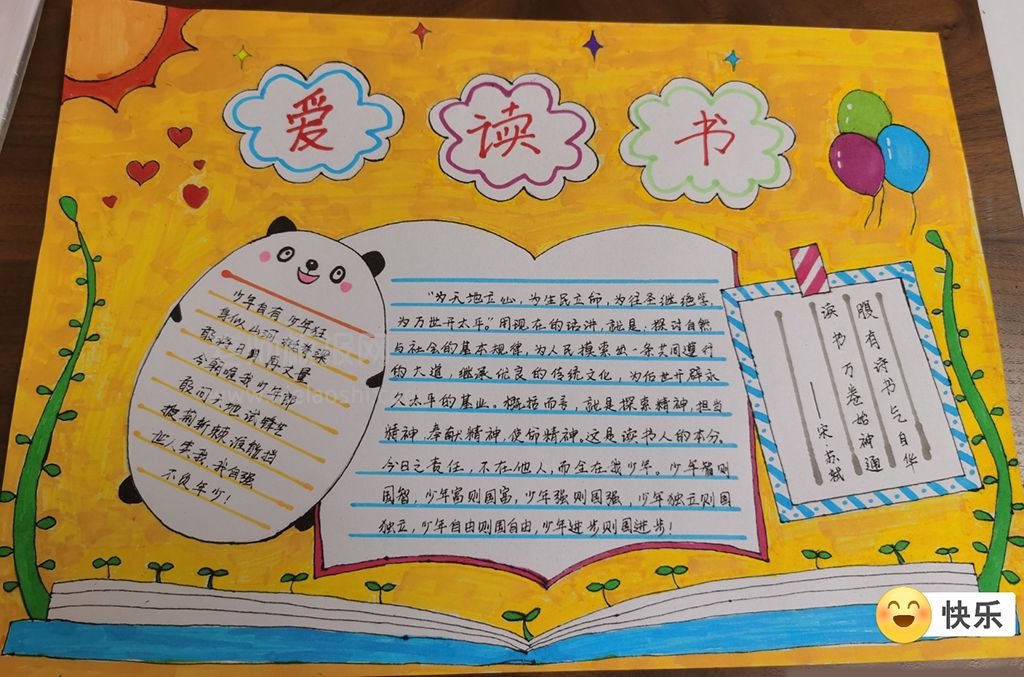 爱 读 书
少年自有少年狂
身似山河挺脊梁
敢将日月再丈量
今朝唯我少年郎
敢问天地试锋芒
披荆斩棘谁能挡
世人笑我我自强
不负年少!
“为天地立心,为生民立命,为往圣继绝学,
为万世开太平。”用现在的话讲,就是:探讨自然
与社会的基本规律,为人民摸索出一条共同遵行
的大道,继承优良的传统文化,为后世开辟永
久太平的基业。概括而言,就是探索精神,担当
精神,奉献精神,使命精神。这是读书人的本分。
今日之责任,不在他人,而全在我少年。少年智则
国智,少年富则国富,少年强则国强,少年独立则国
独立,少年自由则国自由,少年进步则国进步!
腹有诗书气自华
读书万卷始神通
——宋·苏轼
快乐